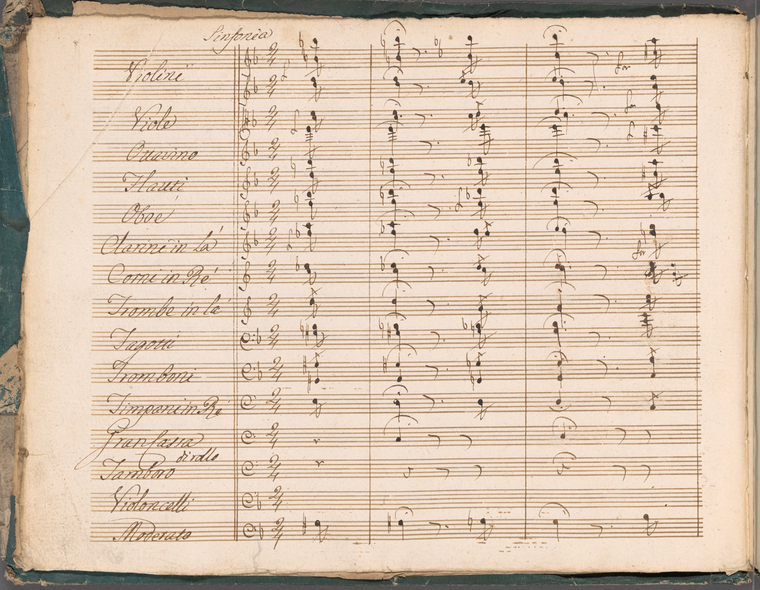 Sinfonia
Violini
Viole
Ottavino
Flauti
Oboè
Clarini in Là
Corni in Rè
Trombe in là
Fagotti
Tromboni
Timpani in Rè
Gran Cassa
di rollo
Tamboro
Violoncelli
Moderato